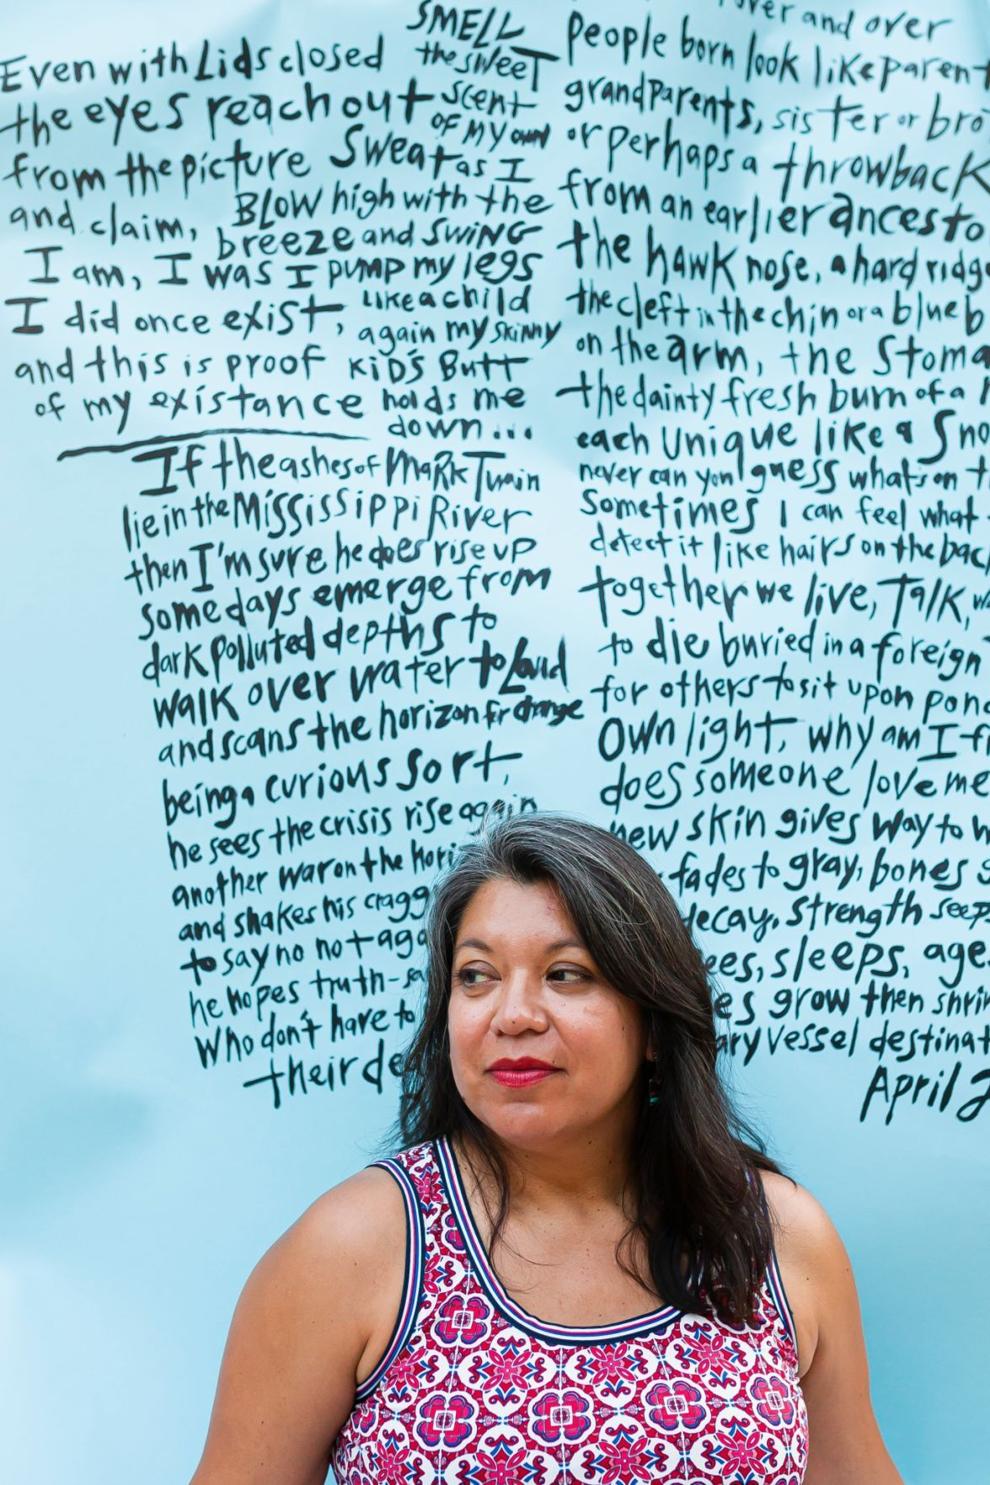 Even with Lids closed
the eyes reach out
from the picture
and claim,
I am, I was
I did once exist,
and this is proof
of my existance
SMELL
the sweet
scent
of my own
Sweat as I
BLOW high with the
breeze and SWING
I pump my legs
like a child
again my skinny
KiD'S Butt
holds me
down...
If the ashes of Mark Twain
lie in the Mississippi River
then I'm sure he does rise up
some days emerge from
dark polluted depths to
walk over water to Land
and scans the horizon for change
being a curious sort,
he sees the crisis rise again
another war on the
and shakes his
to say no not
he hopes truth-
Who don't have to
their
over and over
People born look like
grandparents, sister or
or perhaps a throwback
from an earlier
the hawk nose, a hard
the cleft in the chin or a blue
on the arm, the
the dainty fresh burn of a
each Unique like a
never can you guess what's on
Sometimes I can feel what
detect it like hairs on the
together we live, Talk,
to die buried in a foreign
for others to sit upon
Own light, why am I
does someone love me
new skin gives way to
fades to gray, bones
decay, Strength
sleeps,
grow then
Vessel
April